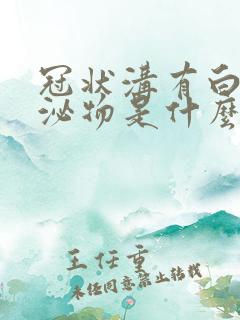 冠状溝有白
泌物是什麽
王任重
未经同意禁止转载